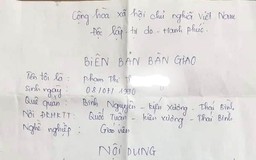 Cộng hòa xã hội chủ nghĩa Việt Nam
Độc lập - tự do - Hạnh phúc.
BIÊN BẢN BÀN GIAO
Tên tôi là : phạm Thị
Sinh ngày : 08/08/1980
Quê quán : Bình Nguyên - Kiến Xương - Thái Bình
Nơi ĐKHKTT : Quốc Tuấn - Kiến Xương - Thái Bình
Nghề nghiệp : Giáo viên
NỘI DUNG